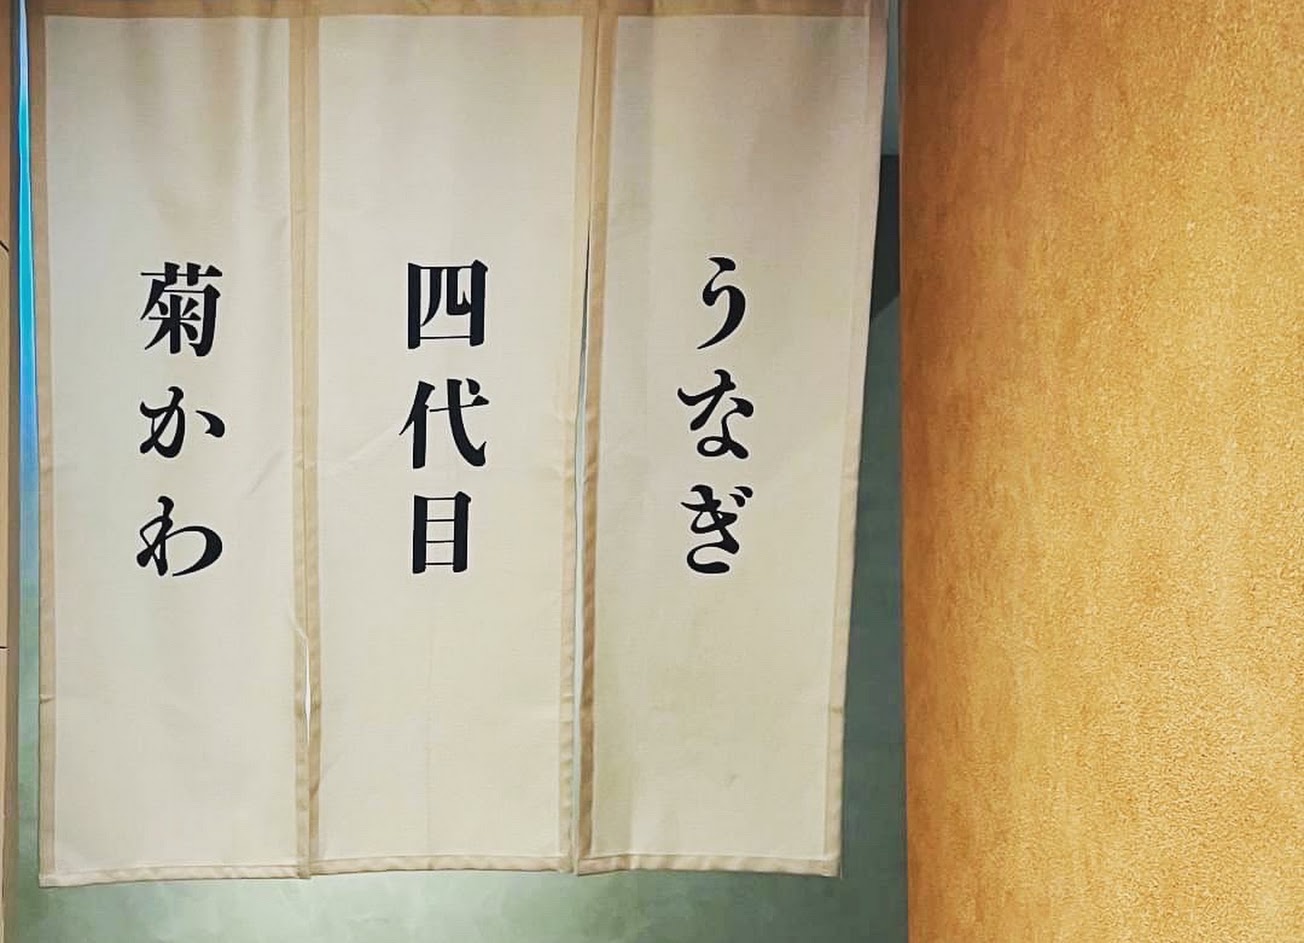 うなぎ
四代目
菊かわ